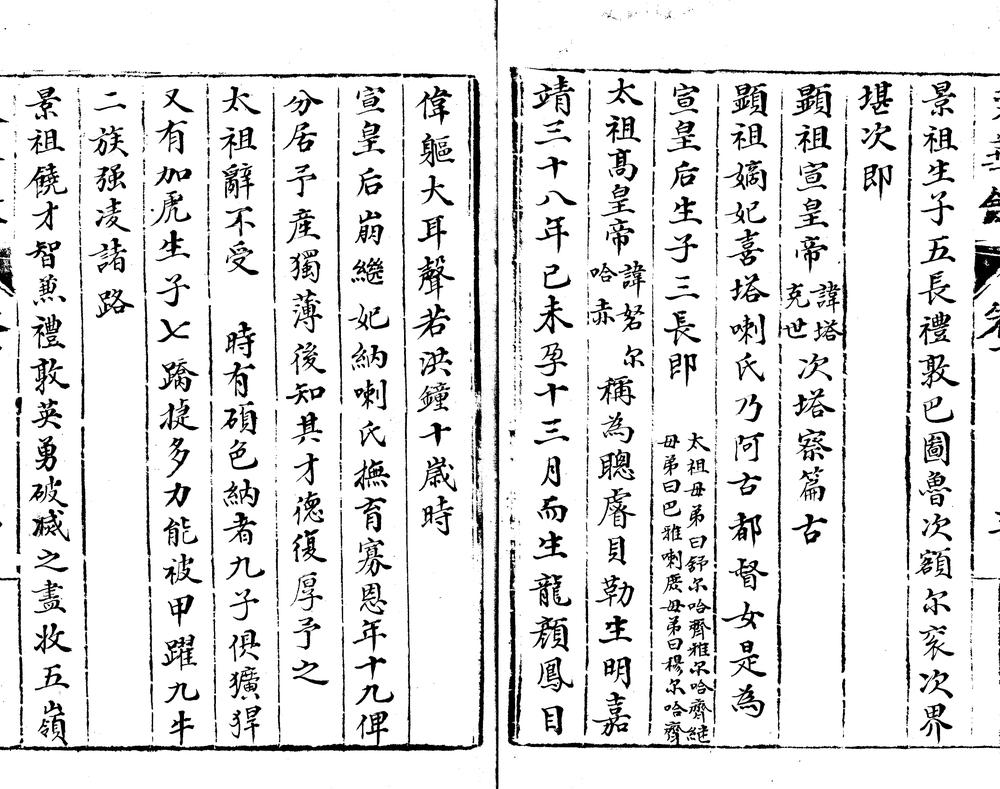 景祖生子五長禮敦巴圖魯次額尔衮次界
堪次即
顯祖宣皇帝諱塔克世次塔察篇古
顯祖嫡妃喜塔喇氏乃阿古都督女是為
宣皇后生子三長即
太祖母弟曰舒尔哈齊雅尔哈齊継
母弟曰巴雅喇庶母弟曰穆尔哈齊
太祖高皇帝諱努尔哈赤稱為聰睿貝勒生明嘉
靖三十八年已未孕十三月而生龍顏鳳目
偉軀大耳聲若洪鐘十歲時
宣皇后崩繼妃納喇氏撫育寡恩年十九俾
分居予產獨薄後知其才德復厚予之
太祖辭不受 時有碩色納者九子俱獷猂
又有加虎生子七蹻捷多力能被甲躍九牛
二族强凌諸路
景祖饒才智兼禮敦英勇破滅之盡收五嶺